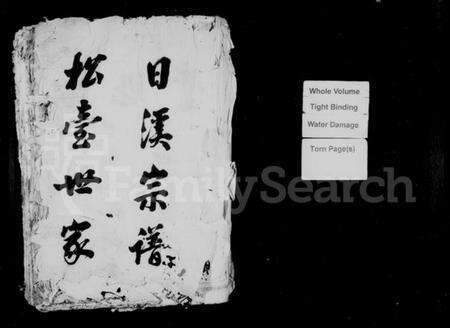 日溪宗譜
松臺世家
Whole Volume
Tight Binding
Water Damage
Torn Page(s)
FamilySearch